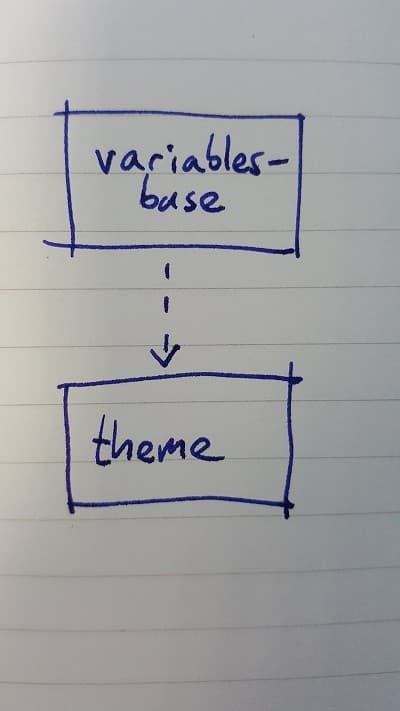 variables-
base
theme